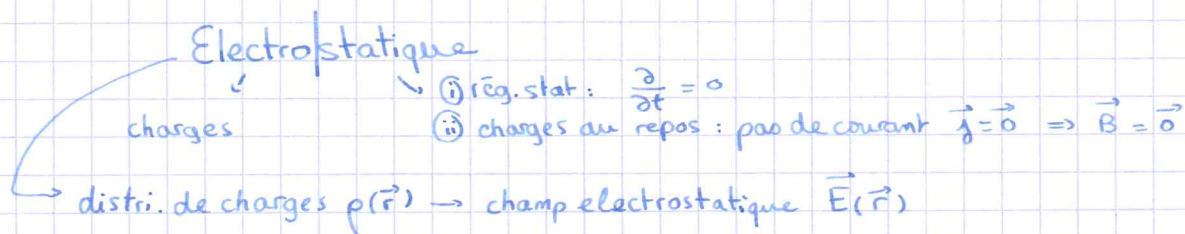 Electro|statique
ⓘ rég. stat : ∂/∂t = 0
charges
ⓘⓘ charges au repos : pas de courant j⃗ = 0⃗ ⇒ B⃗ = 0⃗
→ distri. de charges ρ(r⃗) → champ electrostatique E⃗(r⃗)